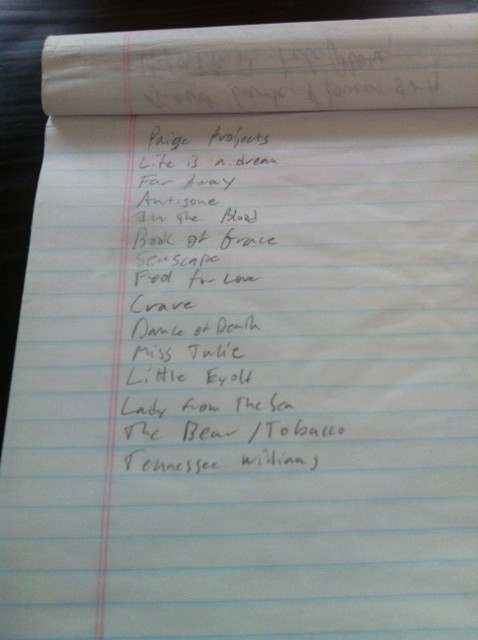 Paige Projects
Life is a dream
Far Away
Antigone
In The Blood
Book of Grace
Seascape
Fool for Love
Crave
Dance of Death
Miss Julie
Little Eyolf
Lady from The Sea
The Bear / Tobacco
Tennessee Williams